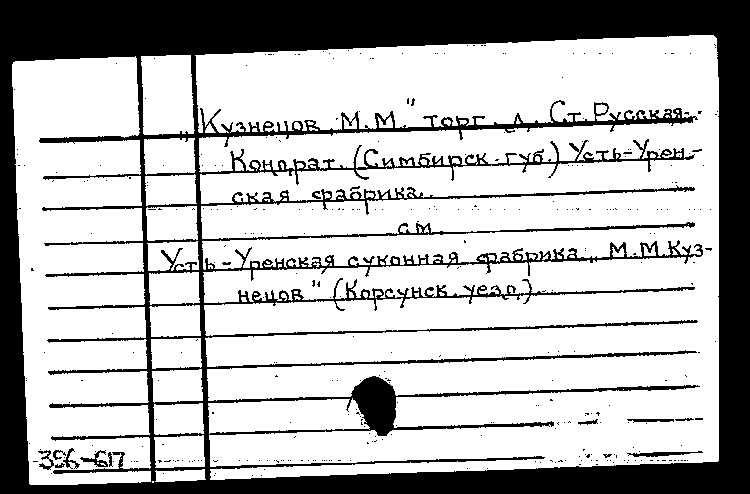 „Кузнецов, М.М." торг. д. Ст. Русская
Кондрат. (Симбирск. губ.) Усть-Урен-
ская фабрика.
см.
Усть-Уренская суконная фабрика „М.М.Куз-
нецов" (Корсунск. уезд.).
356-617